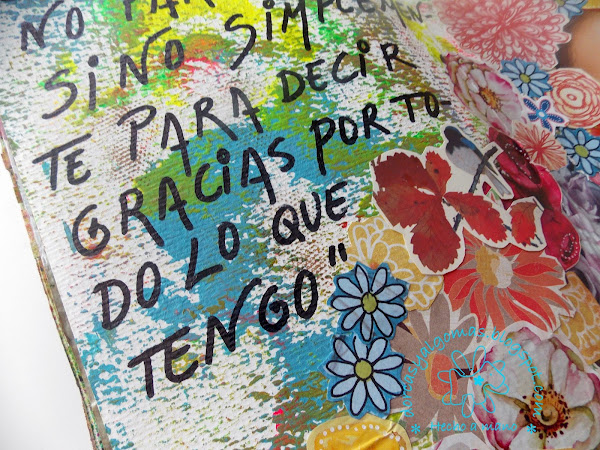 NO PAR
SINO SIMPLEMEN
TE PARA DECIR
GRACIAS POR TO-
DO LO QUE
TENGO"
* Hecho a mano *